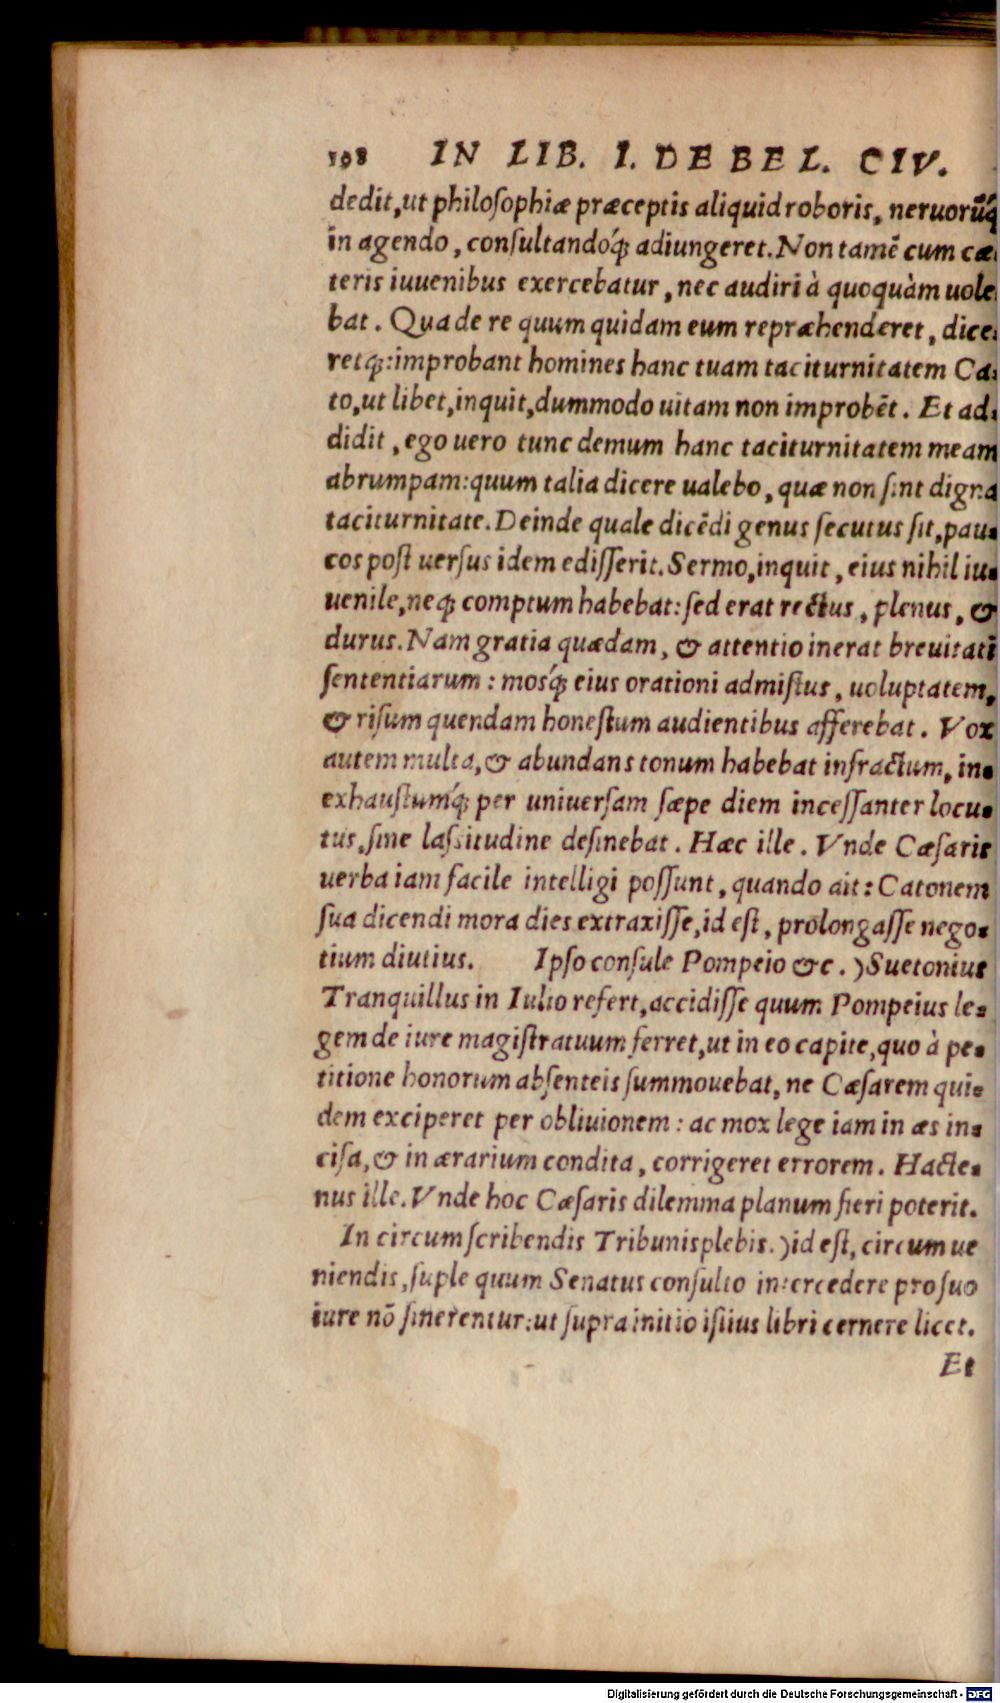 198 IN LIB. I. DE BEL. CIV.
dedit, ut philosophiæ præceptis aliquid roboris, neruorū́q;
in agendo, consultandóq; adiungeret. Non tamē cum cæ-
teris iuuenibus exercebatur, nec audiri à quoquàm uole
bat. Qua de re quum quidam eum repræhenderet, dice-
retq;: improbant homines hanc tuam taciturnitatem Ca-
to, ut libet, inquit, dummodo uitam non improbēt. Et ad-
didit, ego uero tunc demum hanc taciturnitatem meam
abrumpam: quum talia dicere ualebo, quæ non sint digna
taciturnitate. Deinde quale dicēdi genus secutus sit, pau-
cos post uersus idem edisserit. Sermo, inquit, eius nihil iu-
uenile, neq; comptum habebat: sed erat rectus, plenus, &
durus. Nam gratia quædam, & attentio inerat breuitati
sententiarum: mosq́; eius orationi admistus, uoluptatem,
& risum quendam honestum audientibus afferebat. Vox
autem multa, & abundans tonum habebat infractum, in-
exhaustumq́; per uniuersam sæpe diem incessanter locu-
tus, sine lassitudine desinebat. Hæc ille. Vnde Cæsaris
uerba iam facile intelligi possunt, quando ait: Catonem
sua dicendi mora dies extraxisse, id est, prolongasse nego-
tium diutius. Ipso consule Pompeio &c.) Suetonius
Tranquillus in Iulio refert, accidisse quum Pompeius le-
gem de iure magistratuum ferret, ut in eo capite, quo à pe-
titione honorum absenteis summouebat, ne Cæsarem qui-
dem exciperet per obliuionem: ac mox lege iam in æs in-
cisa, & in ærarium condita, corrigeret errorem. Hacte-
nus ille. Vnde hoc Cæsaris dilemma planum fieri poterit.
In circumscribendis Tribunis plebis.) id est, circum ue
niendis, suple quum Senatus consulto intercedere pro suo
iure nō sinerentur: ut supra initio istius libri cernere licet.
Et
Digitalisierung gefördert durch die Deutsche Forschungsgemeinschaft - DFG